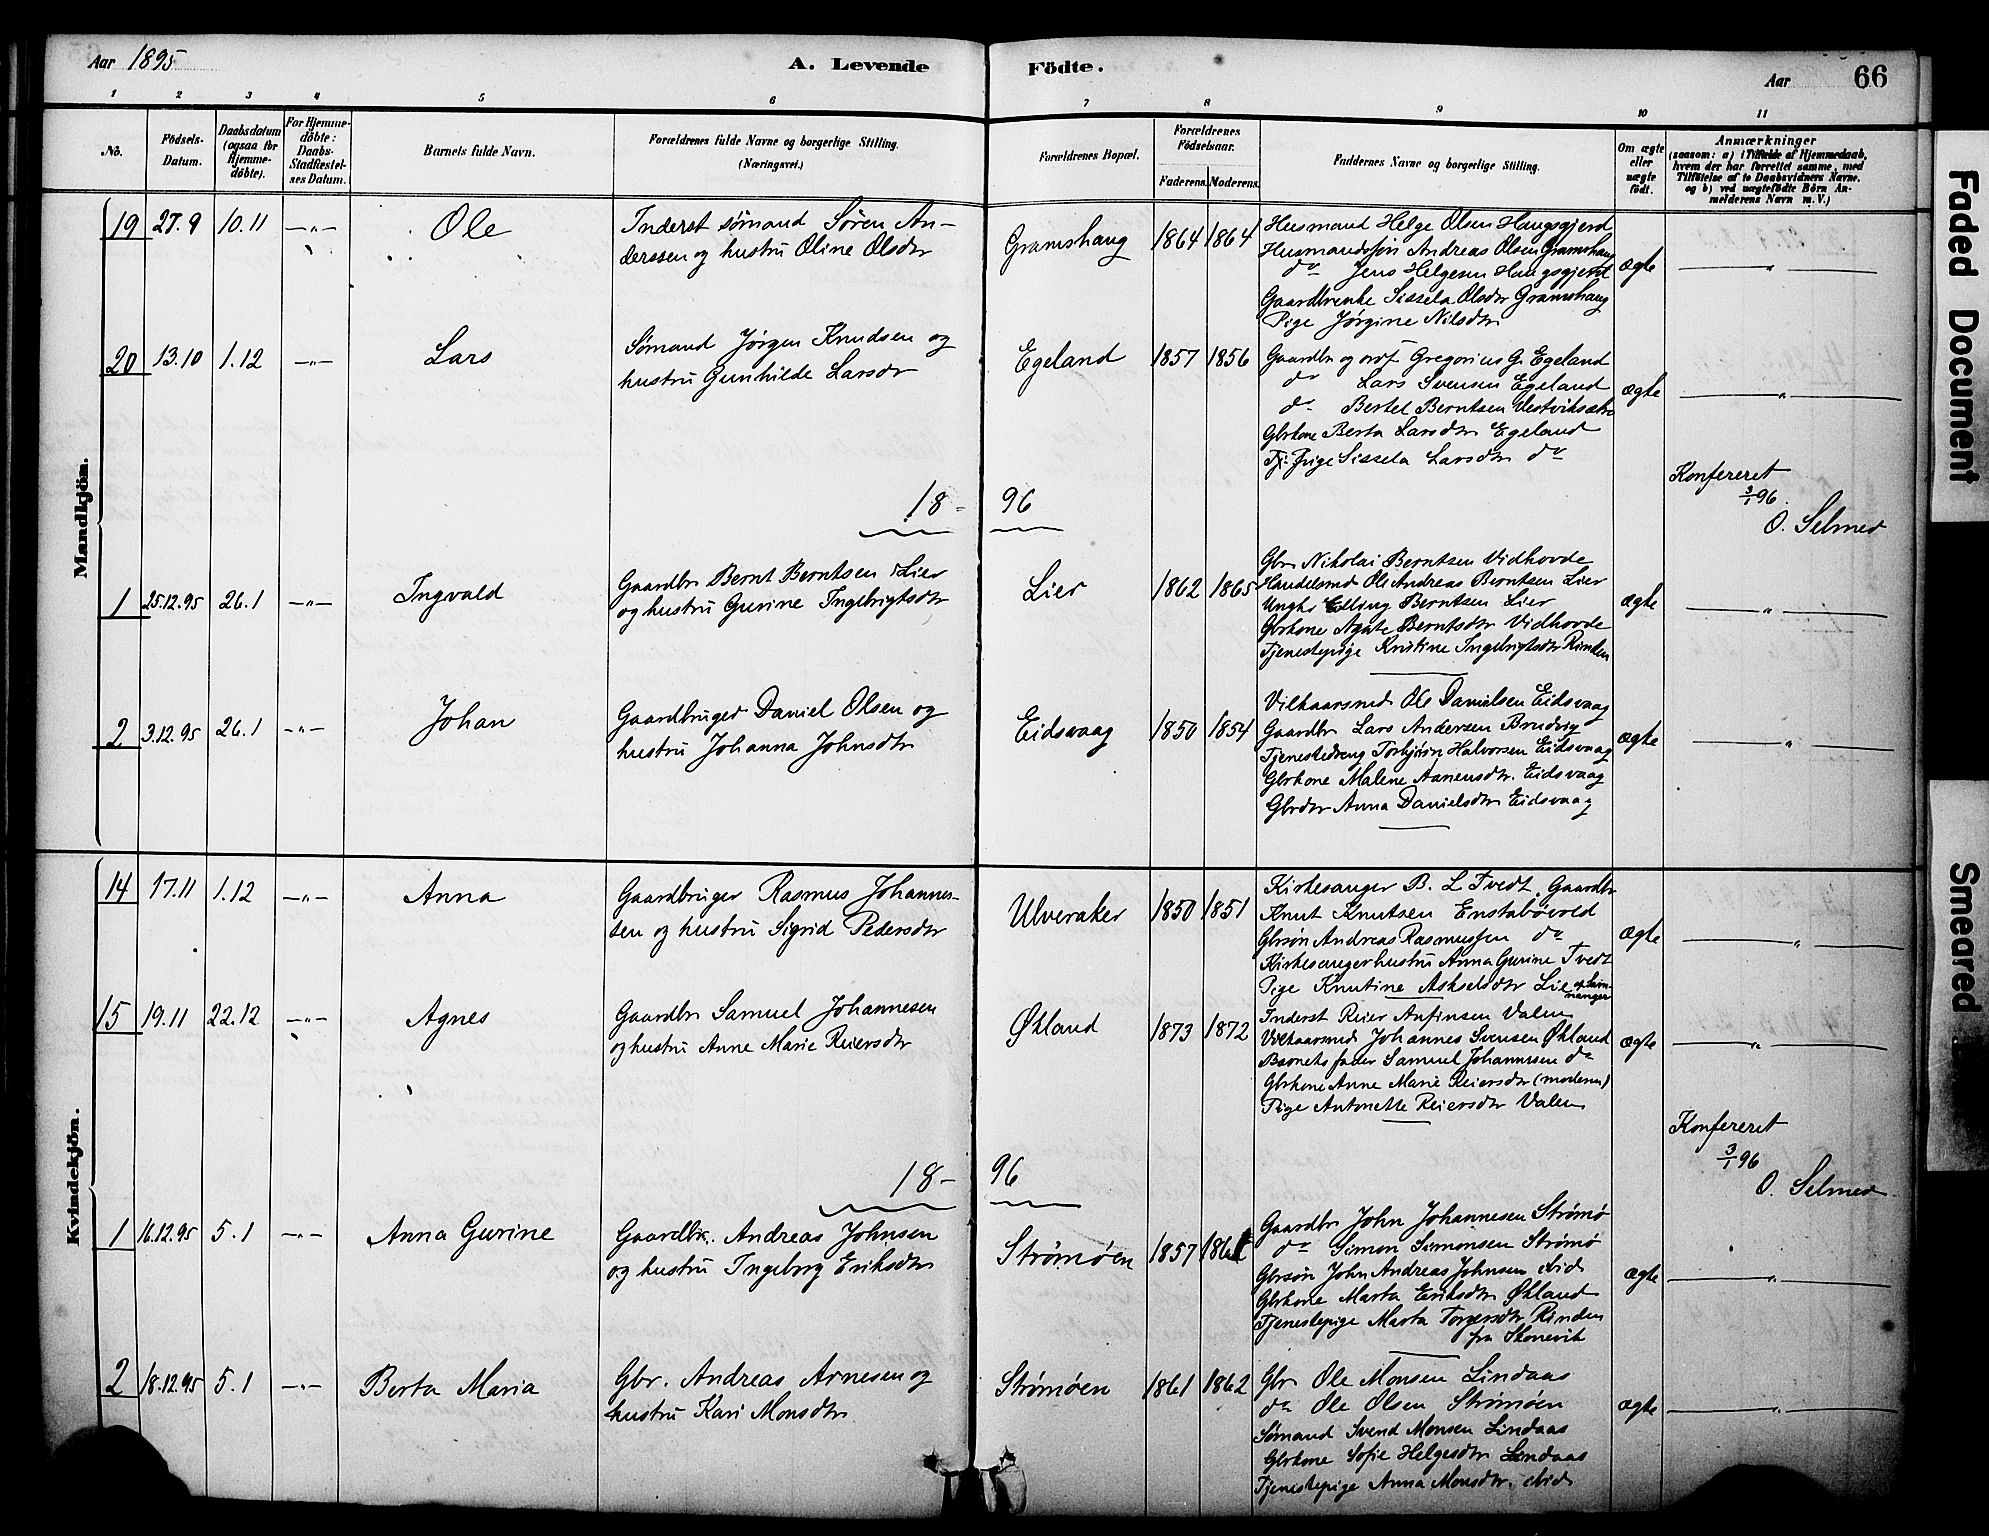 Aar 1895
A. Levende Födte.
Aar 66
1 2 3 4 5 6 7 8 9 10 11
No.
Födsels-Datum.
Daabsdatum (ogsaa for Hjemme-döbte).
For Hjemme-döbte: Daabs-Stadfæstel-ses Datum.
Barnets fulde Navn.
Forældrenes fulde Navne og borgerlige Stilling. (Næringsvei.)
Forældrenes Bopæl.
Forældrenes Födselsaar.
Faderens. Moderens.
Faddernes Navne og borgerlige Stilling.
Om ægte eller uægte födt.
Anmærkninger
(saasom: a) i Tilfælde af Hjemmedaab, hvem der har forrettet samme, med Tilföielse af to Daabsvidners Navne, og b) ved uægtefödte Börn An-melderens Navn m. V.)
Mandkjön.
19 27.9 10.11 —„— Ole
Inderst sømand Søren An-
derssen og hustru Oline Olsdtr
Gramshaug 1864 1864
Husmand Helge Olsen Haugsgjerd
Husmandssøn Andreas Olsen Gramshaug
do Jens Helgesen Haugsgjerd
Gaardbrenke Sissela Olsdtr Gramshaug
Pige Jørgine Nilsdtr
ægte —„—
20 13.10 1.12 —„— Lars
Sømand Jørgen Knudsen og
hustru Gunhilde Larsdr
Egeland 1857 1856
Gaardbr og ordf. Gregorius G. Egeland
do Lars Svensen Egeland
do Bertel Berntsen
Gbrkone Berta Larsdtr Egeland
Tj. pige Sissela Larsdtr do
ægte —„—
Konfereret
3/1 96
O. Selmer
18-96
1 25.12.95 26.1 —„— Ingvald
Gaardbr Bernt Berntsen Lier
og hustru Gurine Ingebrigtsdtr
Lier 1862 1865
Gbr Nikolai Berntsen Vidhovde
Handelsmd Ole Andreas Berntsen Lier
Ungkr Elling Berntsen Lier
Gbrkone Agate Berntsdtr Vidhovde
Tjenestepige Kristine Ingebrigtsdtr Rinden
ægte —„—
2 3.12.95 26.1 —„— Johan
Gaardbruger Daniel Olsen og
hustru Johanna Johnsdtr
Eidsvaag 1850 1854
Vilkaarsmd Ole Danielsen Eidsvaag
Gaardbr Lars Andersen Brudvig
Tjenestedreng Torbjørn Halvorsen Eidsvaag
Gbrkone Malene Aanensdtr. Eidsvaag
Gbrdtr Anna Danielsdtr Eidsvaag
ægte —„—
Kvindekjön.
14 17.11 1.12 —„— Anna
Gaardbruger Rasmus Johannes-
sen og hustru Sigrid Pedersdtr
Ulveraker 1850 1851
Kirkesanger B. L Tvedt, Gaardbr
Knut Knutsen Enstabövold
Gbrsøn Andreas Rasmussen do
Kirkesangerhustru Anna Gurine Tvedt
Pige Knutine Askselsdtr Lie
ægte —„—
15 19.11 22.12 —„— Agnes
Gaardbr Samuel Johannesen
og hustru Anne Marie Reiersdtr
Økland 1873 1872
Inderst Reier Anfinsen Valen
Vilkaarsmd Johannes Svensen Økland
Barnets fader Samuel Johannesen do
Gbrkone Anne Marie Reiersdtr (moderen)
Pige Antonette Reiersdtr Valen
ægte —„—
Konfereret
3/1 96
O. Selmer
18-96
1 16.12.95 5.1 —„— Anna Gurine
Gaardbr. Andreas Johnsen
og hustru Ingeborg Eriksdtr
Strømøen 1857
Gaardbr John Johannesen Strømø
do Simon Simonsen Strømø
Gbrsøn John Andreas Johnsen ibid
Gbrkone Marta Eriksdtr Økland
Tjenestepige Marta Torgersdtr Rinden
fra Skonevik
ægte —„—
2 18.12.95 5.1 —„— Berta Maria
Gbr. Andreas Arnesen og
hustru Kari Monsdtr
Strømøen 1861 1862
Gbr Ole Monsen Lindaas
do Ole Olsen Strømøen
Sømand Svend Monsen Lindaas
Gbrkone Sofie Helgesdtr Lindaas
Tjenestepige Anna Monsdtr. ibid
ægte —„—
Faded Document
Smeared